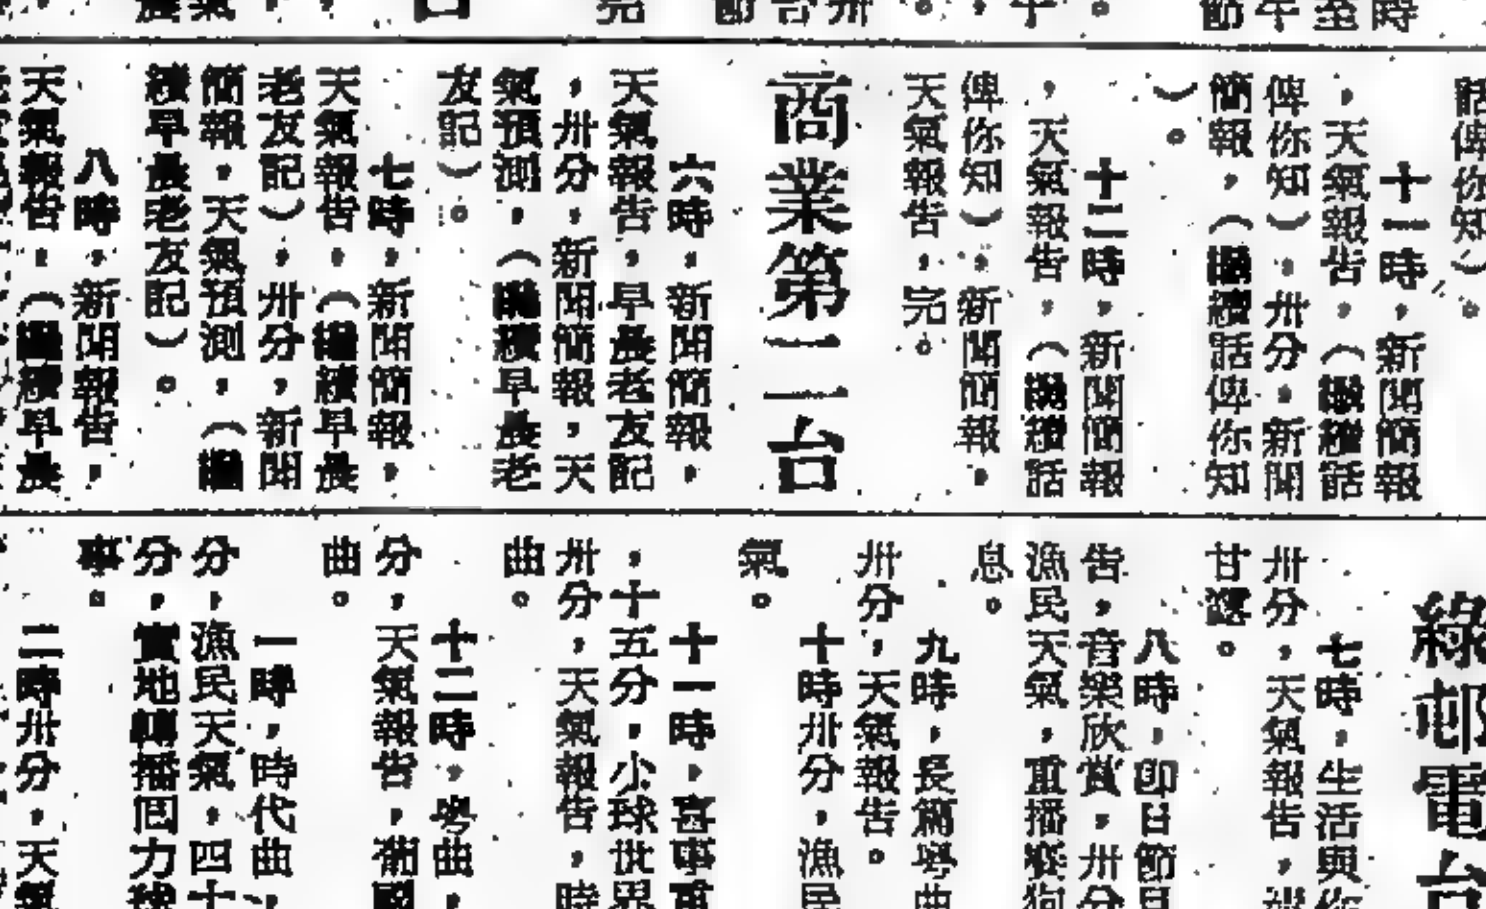 話俾你知）。
十一時，新聞簡報
，天氣報告，（繼續話
俾你知），卅分，新聞
簡報，（繼續話俾你知
）。
十二時，新聞簡報
，天氣報告，（繼續話
俾你知），新聞簡報，
天氣報告，完。
商業第二台
六時，新聞簡報，
天氣報告，早晨老友記
，卅分，新聞簡報，天
氣預測，（繼續早晨老
友記）。
七時，新聞簡報，
天氣報告，（繼續早晨
老友記），卅分，新聞
簡報，天氣預測，（繼
續早晨老友記）。
八時，新聞報告，
天氣報告，（繼續早晨
綠邨電台
七時，生活與你
卅分，天氣報告，
甘
八時，即日節目
告，音樂欣賞，卅分
漁民天氣，重播賽狗
息。
九時，長篇粵曲
卅分，天氣報告。
十時卅分，漁民
氣。
十一時，喜事重
，十五分，小球世界
卅分，天氣報告，時
曲。
十二時，粵曲，
分，天氣報告，葡國
曲。
一時，時代曲，
分，漁民天氣，四十
分，實地轉播回力球
事。
二時卅分，天氣